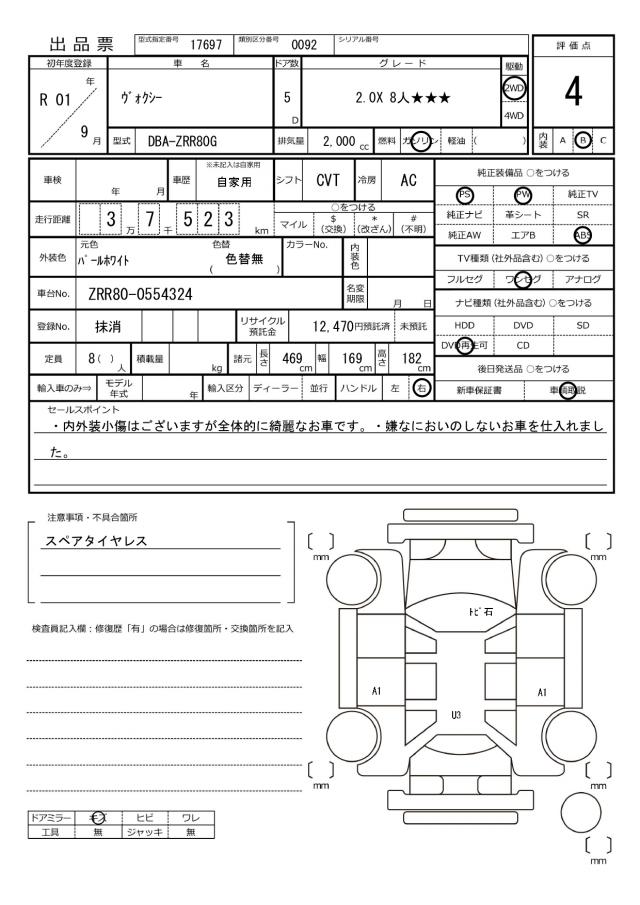 出品票
型式指定番号 17697 類別区分番号 0092 シリアル番号
評価点
4
初年度登録 車名 ドア数 グレード 駆動
R 01 年 9 月
ヴォクシー
5 D
2.0X 8人★★★
2WD
4WD
型式 DBA-ZRR80G 排気量 2,000 cc 燃料 ガソリン 軽油 ( )
内装 A B C
車検 年 月 車歴 ※未記入は自家用 自家用 シフト CVT 冷房 AC
純正装備品 ○をつける
PS PW 純正TV
純正ナビ 革シート SR
純正AW エアB ABS
走行距離 3 万 7 千 5 2 3 km
○をつける
マイル $ (交換) * (改ざん) # (不明)
外装色 元色 パールホワイト 色替 ( 色替無 ) カラーNo. 内装色
TV種類 (社外品含む) ○をつける
フルセグ ワンセグ アナログ
車台No. ZRR80-0554324 名変期限 月 日
ナビ種類 (社外品含む) ○をつける
HDD DVD SD
DVD再生可 CD
登録No. 抹消 リサイクル預託金 12,470円預託済 未預託
定員 8( ) 人 積載量 kg 諸元 長さ 469 cm 幅 169 cm 高さ 182 cm
後日発送品 ○をつける
新車保証書 車輌取説
輸入車のみ⇒ モデル年式 年 輸入区分 ディーラー 並行 ハンドル 左 右
セールスポイント
・内外装小傷はございますが全体的に綺麗なお車です。・嫌なにおいのしないお車を仕入れまし
た。
注意事項・不具合箇所
スペアタイヤレス
検査員記入欄:修復歴「有」の場合は修復箇所・交換箇所を記入
〔 〕 mm
〔 〕 mm
トビ石
A1
A1
U3
〔 〕 mm
〔 〕 mm
〔 〕 mm
ドアミラー キズ ヒビ ワレ
工具 無 ジャッキ 無